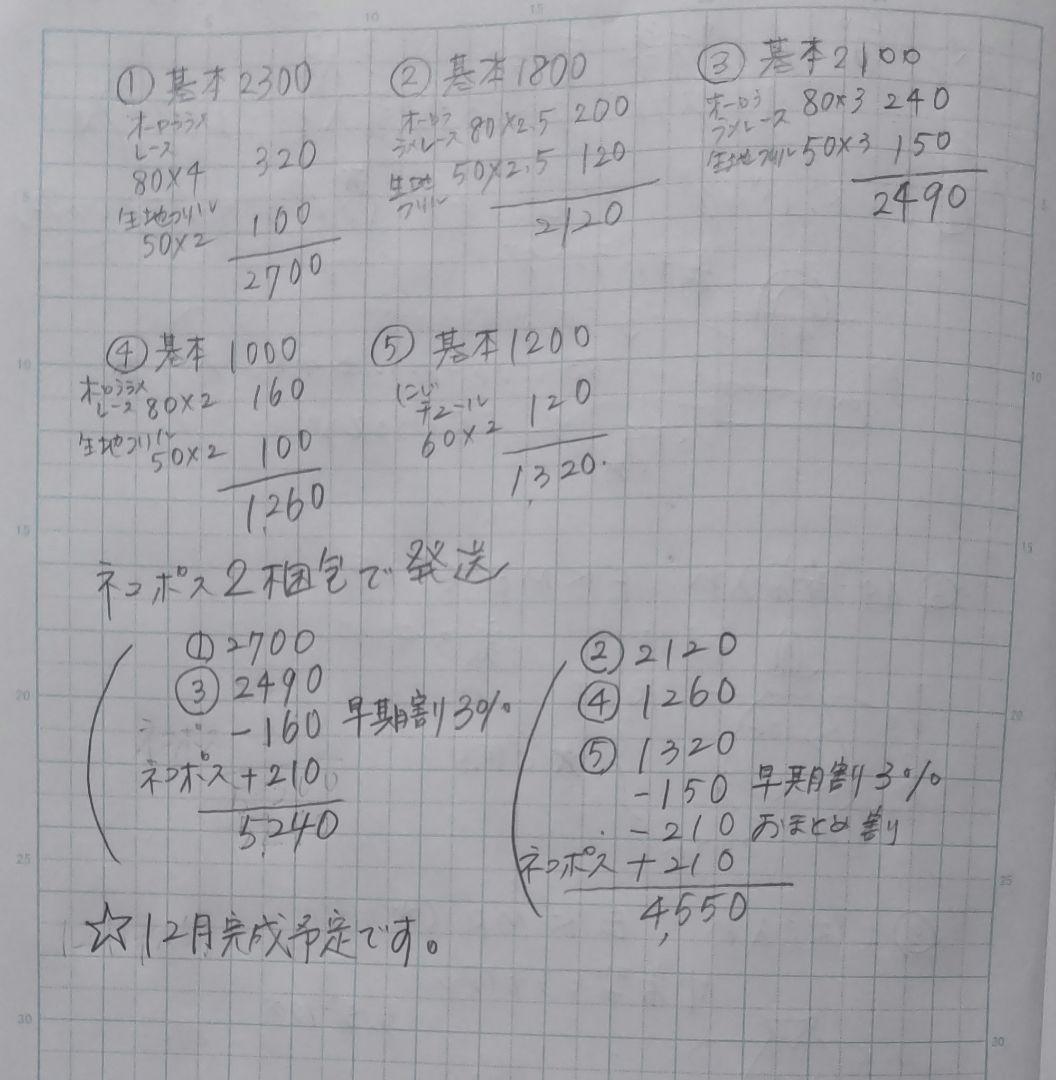 ① 基本 2300
オーロララメ
レース
80×4 320
生地フリル
50×2 100
2700
② 基本 1800
オーロラ
ラメレース 80×2.5 200
生地
フリル 50×2.5 120
2120
③ 基本 2100
オーロラ
ラメレース 80×3 240
生地フリル 50×3 150
2490
④ 基本 1000
オーロララメ
レース 80×2 160
生地フリル
50×2 100
1,260
⑤ 基本 1200
にじ
チュール
60×2 120
1,320.
ネコポス 2梱包で発送
① 2700
③ 2490
-160 早期割り3%
ネコポス +210
5,240
② 2120
④ 1260
⑤ 1320
-150 早期割り3%
-210 おまとめ割り
ネコポス +210
4,550
☆12月完成予定です。